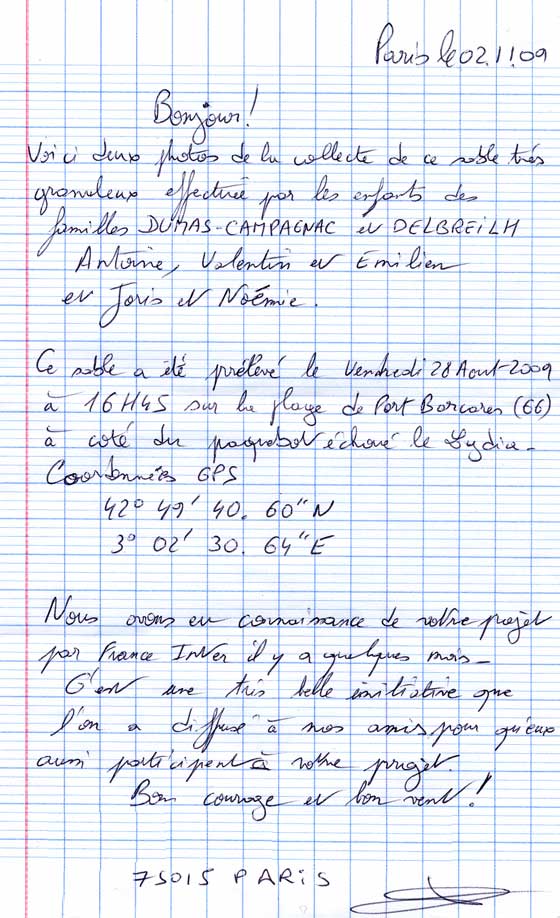 Paris le 02.11.09
Bonjour!
Voici deux photos de la collecte de ce sable très
granuleux effectuée par les enfants des
familles DUMAS-CAMPAGNAC et DELBREILH
Antoine, Valentin et Emilien
et Joris et Noémie.
Ce sable a été prélevé le Vendredi 28 Aout-2009
à 16H45 sur la plage de Port Barcares (66)
à coté du paquebot échoué le Lydia-
Coordonnées GPS
42° 49' 40. 60" N
3° 02' 30. 64" E
Nous avons eu connaissance de votre projet
par France Inter il y a quelques mois-
C'est une très belle initiative que
l'on a diffusé à nos amis pour qu'eux
aussi participent à votre projet.
Bon courage et bon vent!
75015 PARIS